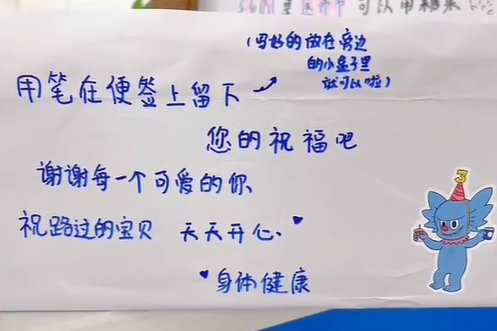 可以用糖果
（写好的放在旁边
的小盒子里
就可以啦）
用笔在便签上留下
您的祝福吧
谢谢每一个可爱的你
祝路过的宝贝 天天开心
身体健康
3